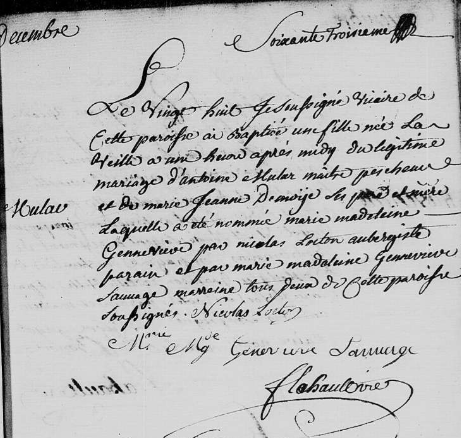 Decembre
Soixante Troisieme
Le Vingt huit Je Soussigné Vicaire de
Cette paroisse ai Baptisé un fille née La
Veille a une heure après midy du legitime
mariage d'antoine Mulac maitre pescheur
et de marie Jeanne Demoije Ses pere et mère
Mulac
Laquelle a été nommée marie madeleine
Gennevieve par nicolas Loton aubergiste
parain et par marie madaleine Gennevieve
Sauvage marreine tous deux de Cette paroisse
Soussignés. Nicolas Loton
Mrie Mgne Genevieve Sauvage
flahault vire